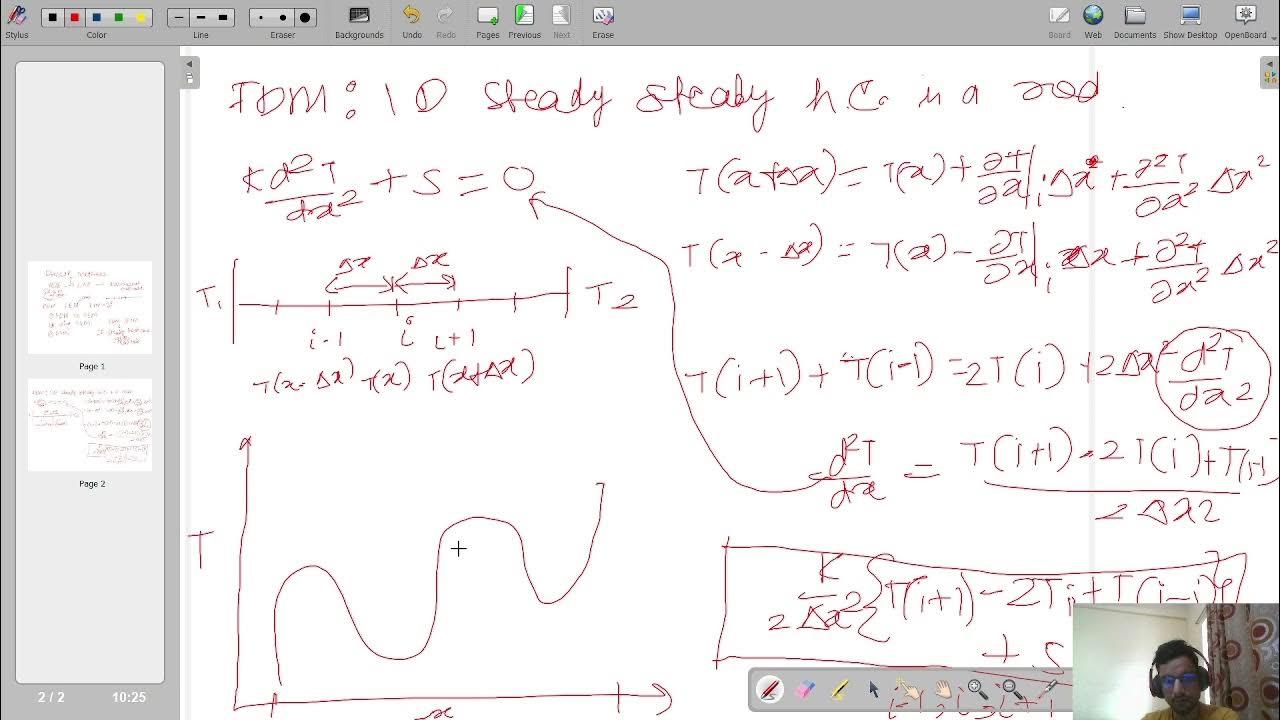 Stylus Color Line Eraser Backgrounds Undo Redo Pages Previous Next Erase Board Web Documents Show Desktop OpenBoard
FDM: 1D steady steady h.C. in a rod.
K d²T/dx² + S = 0
T(x+Δx) = T(x) + ∂T/∂x|i Δx + ∂²T/∂x² Δx²
T(x - Δx) = T(x) - ∂T/∂x|i Δx + ∂²T/∂x² Δx²
Δx Δx
T1 T2
i-1 i i+1
T(x-Δx) T(x) T(x+Δx)
T(i+1) + T(i-1) = 2T(i) + 2Δx² d²T/dx2
d²T/dx = T(i+1) - 2T(i) + T(i-1) / 2Δx2
K/2Δx2 {T(i+1) - 2Ti + T(i-1)}
+ S
i-1, i, i+1
T
x
Page 1
Page 2
2 / 2 10:25